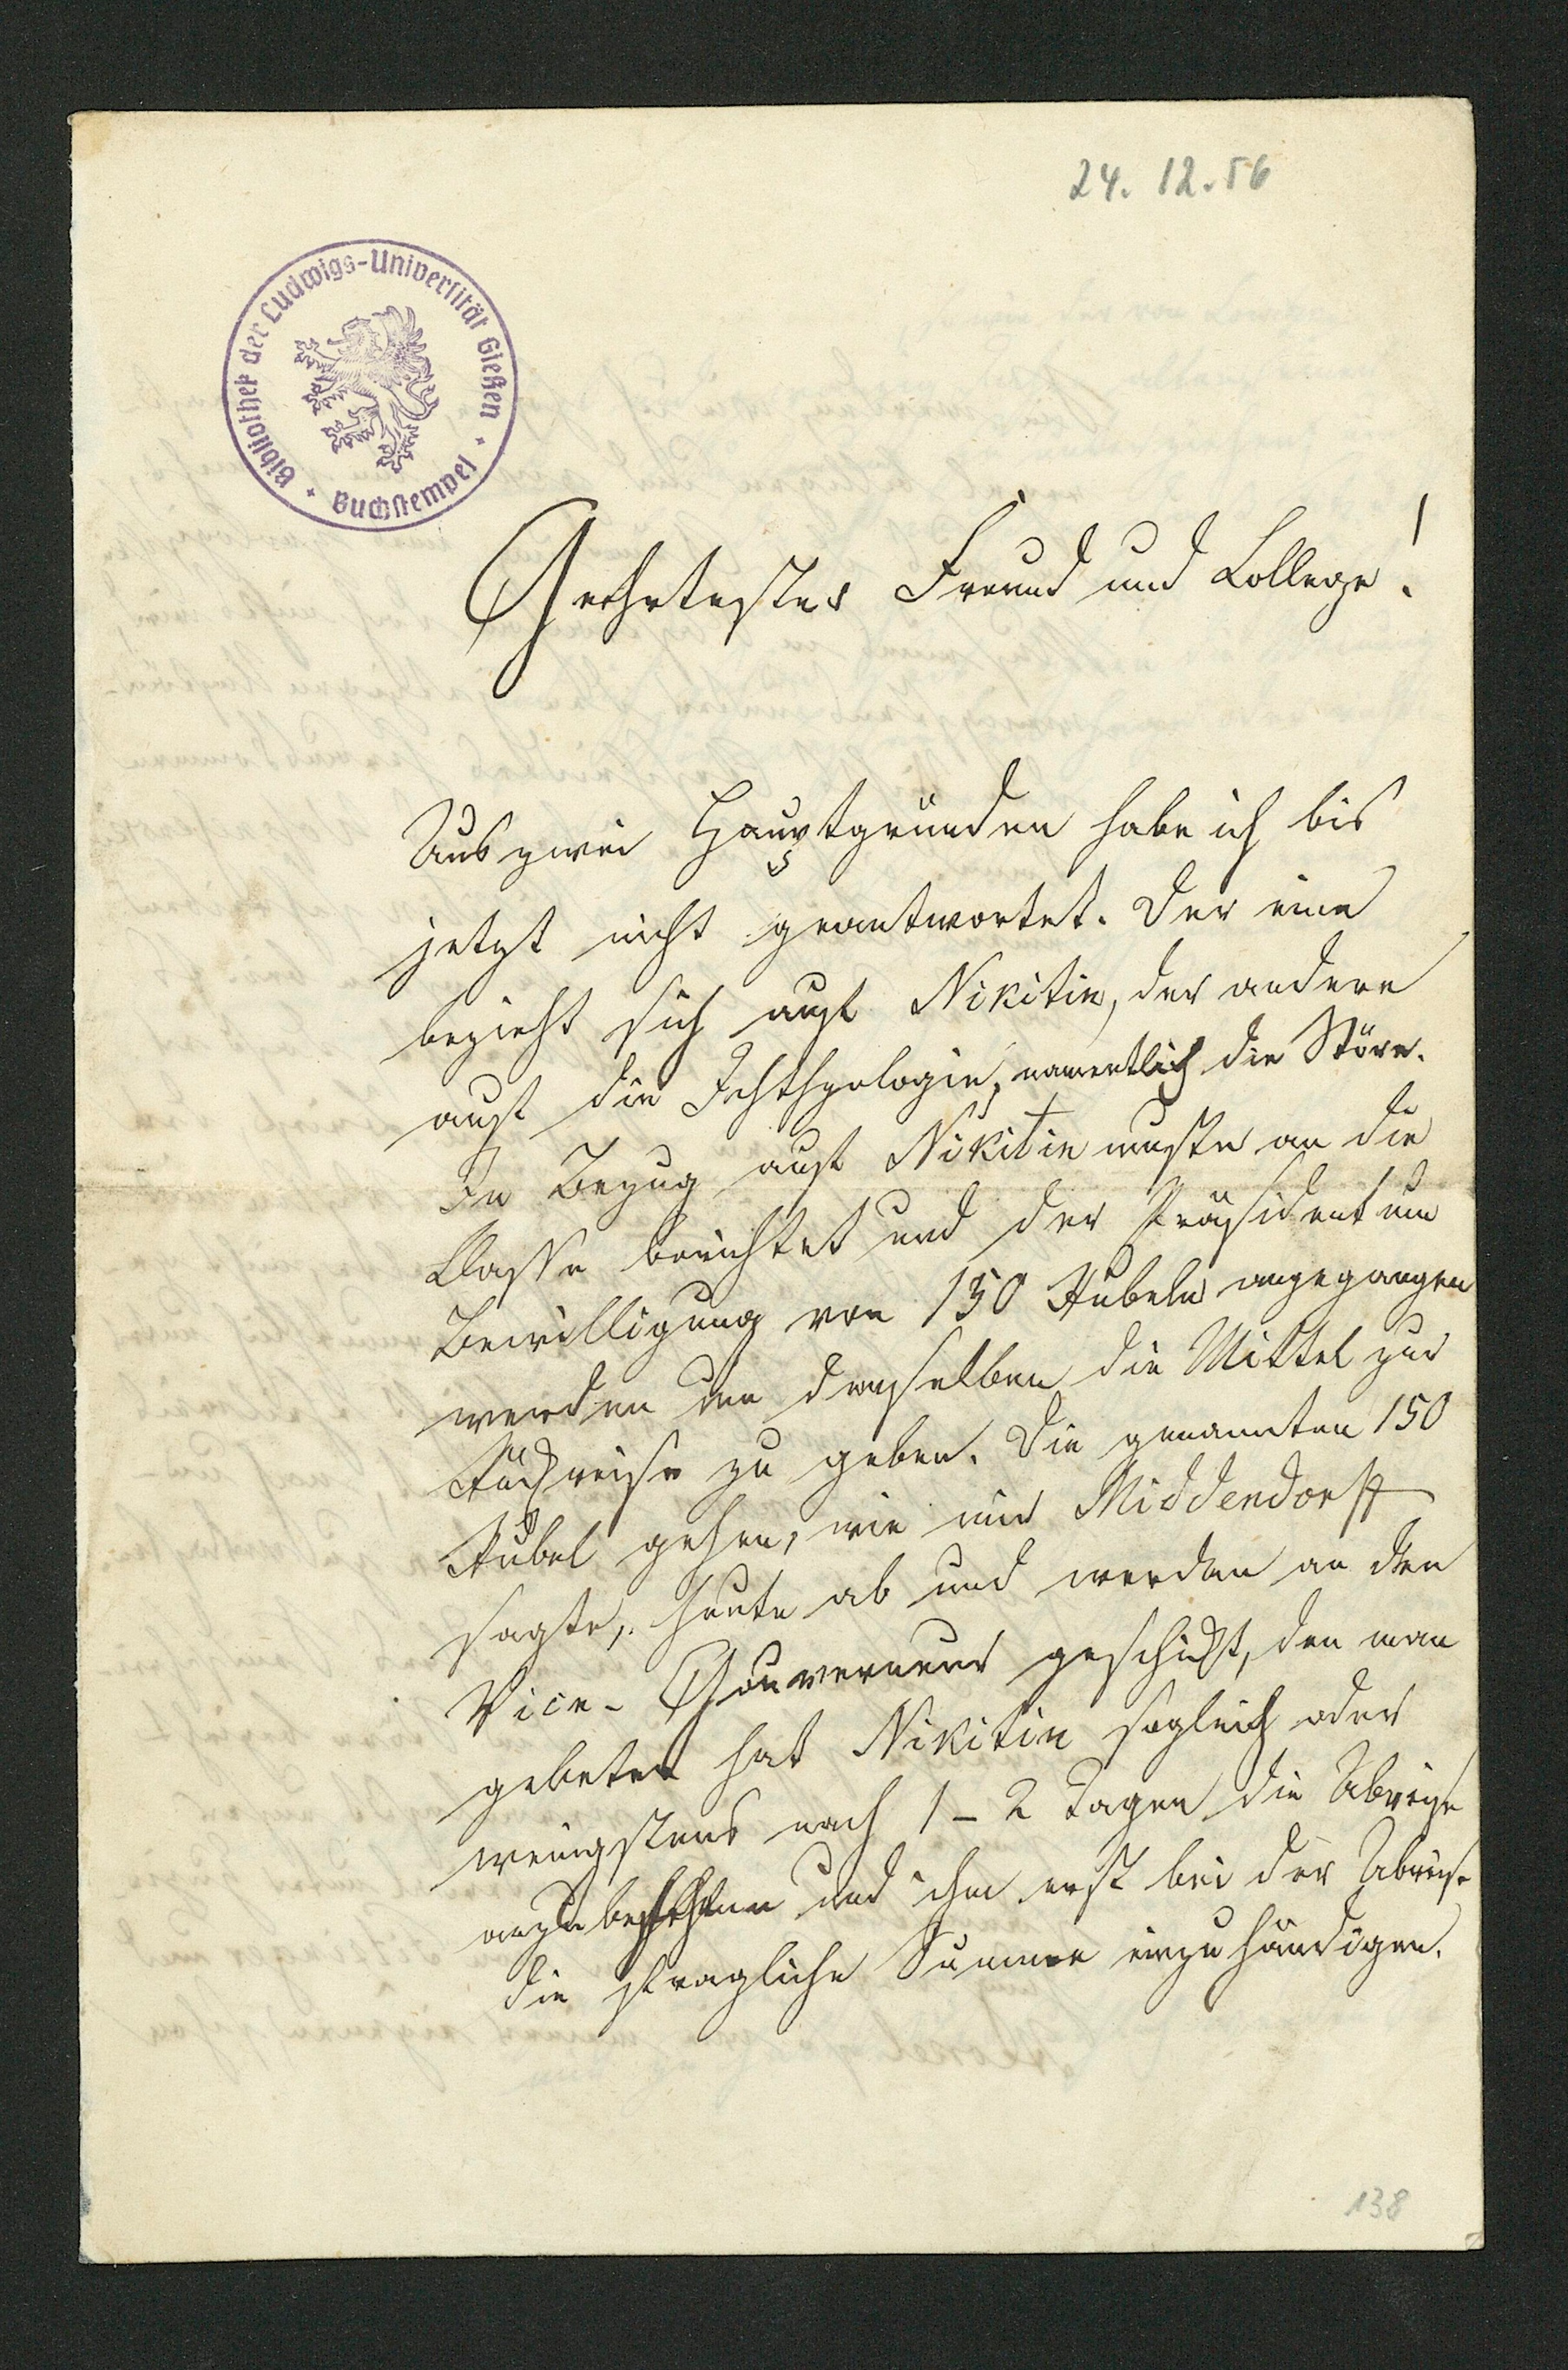 24. 12. 56
Bibliothek der Ludwigs-Universität Gießen
Buchstempel
Geehrtester Freund und College!
Aus zwei Hauptgründen habe ich bis
jetzt nicht geantwortet. Der eine
bezieht sich auf Nikitin, der andere
auf die Ichthyologie, namentlich die Störe.
In Bezug auf Nikitin muste an die
Classe berichtet und der Präsident um
Bewilligung von 150 Rubeln angegangen
werden um demselben die Mittel zur
Rückreise zu geben. Die genannten 150
Rubel gehen, wie mir Middendorff
sagte, heute ab und werden an den
Vice-Gouverneur geschickt, den man
gebeten hat Nikitin sogleich oder
wenigstens nach 1-2 Tagen die Abreise
anzubefehlen und ihm erst bei der Abreise
die fragliche Summe einzuhändigen.
138